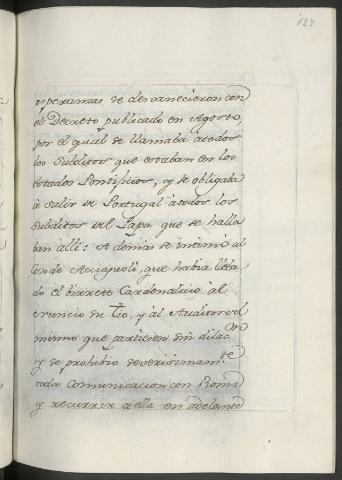 127
esperamas se desvanecieron con
el Decreto publicado en Agosto,
por el qual se llamaba àtodos
los subditos que estaban en los
estados Pontificios, y se obligaba
à salir de Portugal àtodos los
subditos del Papa que se halla
ban alli: Ademas se intimo al
Conde Acciajuoli, que habia lleva
do el birrete Cardenalicio al
Nuncio su Tio, y al Auditor del
mismo que partiesen sin dilac.on
y se prohibio severisimam.te
toda comunicacion con Roma
y recurrir à ella en adelante